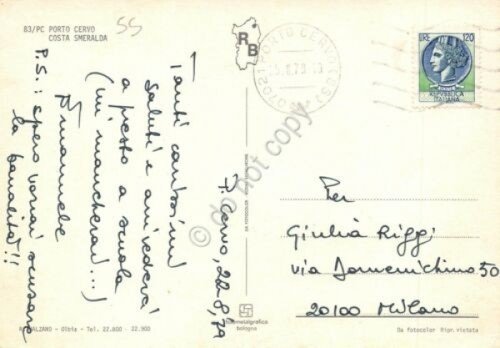 83/PC PORTO CERVO
COSTA SMERALDA
55
RB
07021 PORTO CERVO (SS)
LIRE 120
REPUBBLICA
ITALIANA
Tanti carissimi
saluti e arrivederci
a presto a scuola
(mi mancherai...)
Emanuele
P.S.: spero vorrai scusare
la banalità!!
P. Cervo, 22-8, 79
Per
Giulia Riggi
via Domenichino 50
20100 Milano
BALZANO - Olbia - Tel. 22.800 - 22.900
bologna
Da fotocolor Ripr. vietata
do not copy